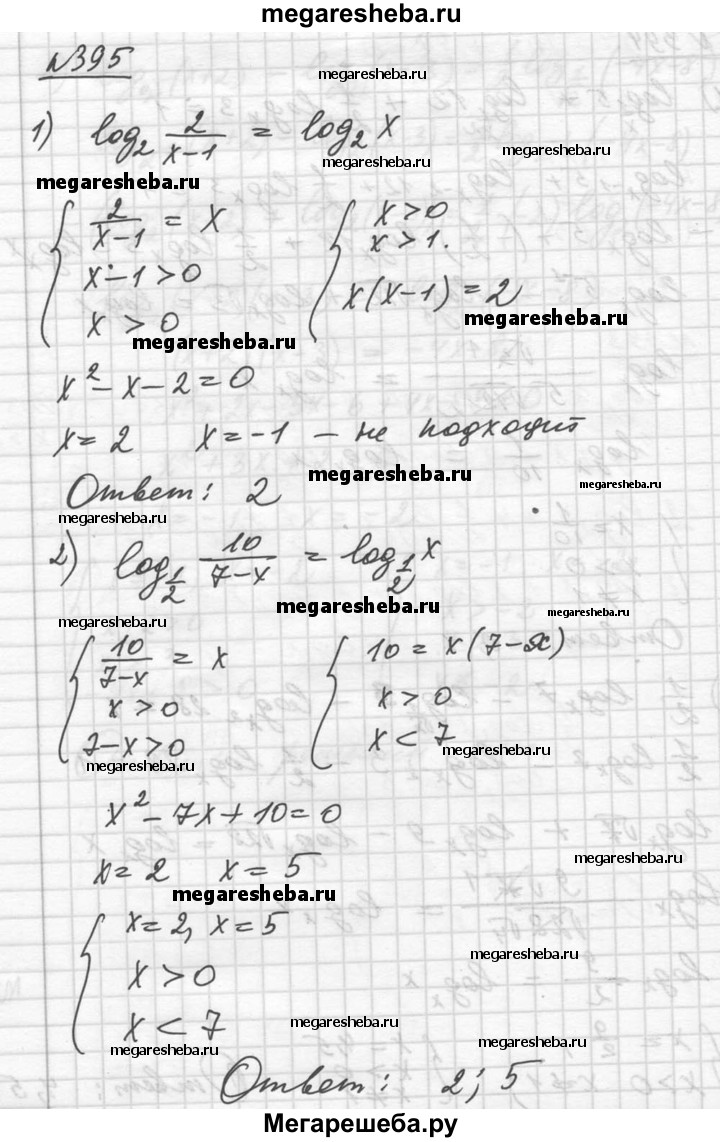 megaresheba.ru
№395
megaresheba.ru
1) log₂ 2/(x-1) = log₂ x
megaresheba.ru
megaresheba.ru
megaresheba.ru
{ 2/(x-1) = x { x>0
x-1>0 x>1.
x>0 x(x-1)=2
megaresheba.ru
megaresheba.ru
x²-x-2=0
x=2 x=-1 — не подходит
megaresheba.ru
megaresheba.ru
Ответ: 2
megaresheba.ru
2) log_{1/2} 10/(7-x) = log_{1/2} x
megaresheba.ru
megaresheba.ru
megaresheba.ru
{ 10/(7-x) = x { 10 = x(7-x)
x>0 x>0
7-x>0 x<7
megaresheba.ru
megaresheba.ru
x²-7x+10=0
x=2 x=5
megaresheba.ru
megaresheba.ru
{ x=2, x=5
x>0
x<7
megaresheba.ru
megaresheba.ru
megaresheba.ru
megaresheba.ru
Ответ: 2; 5
Мегарешеба.ру